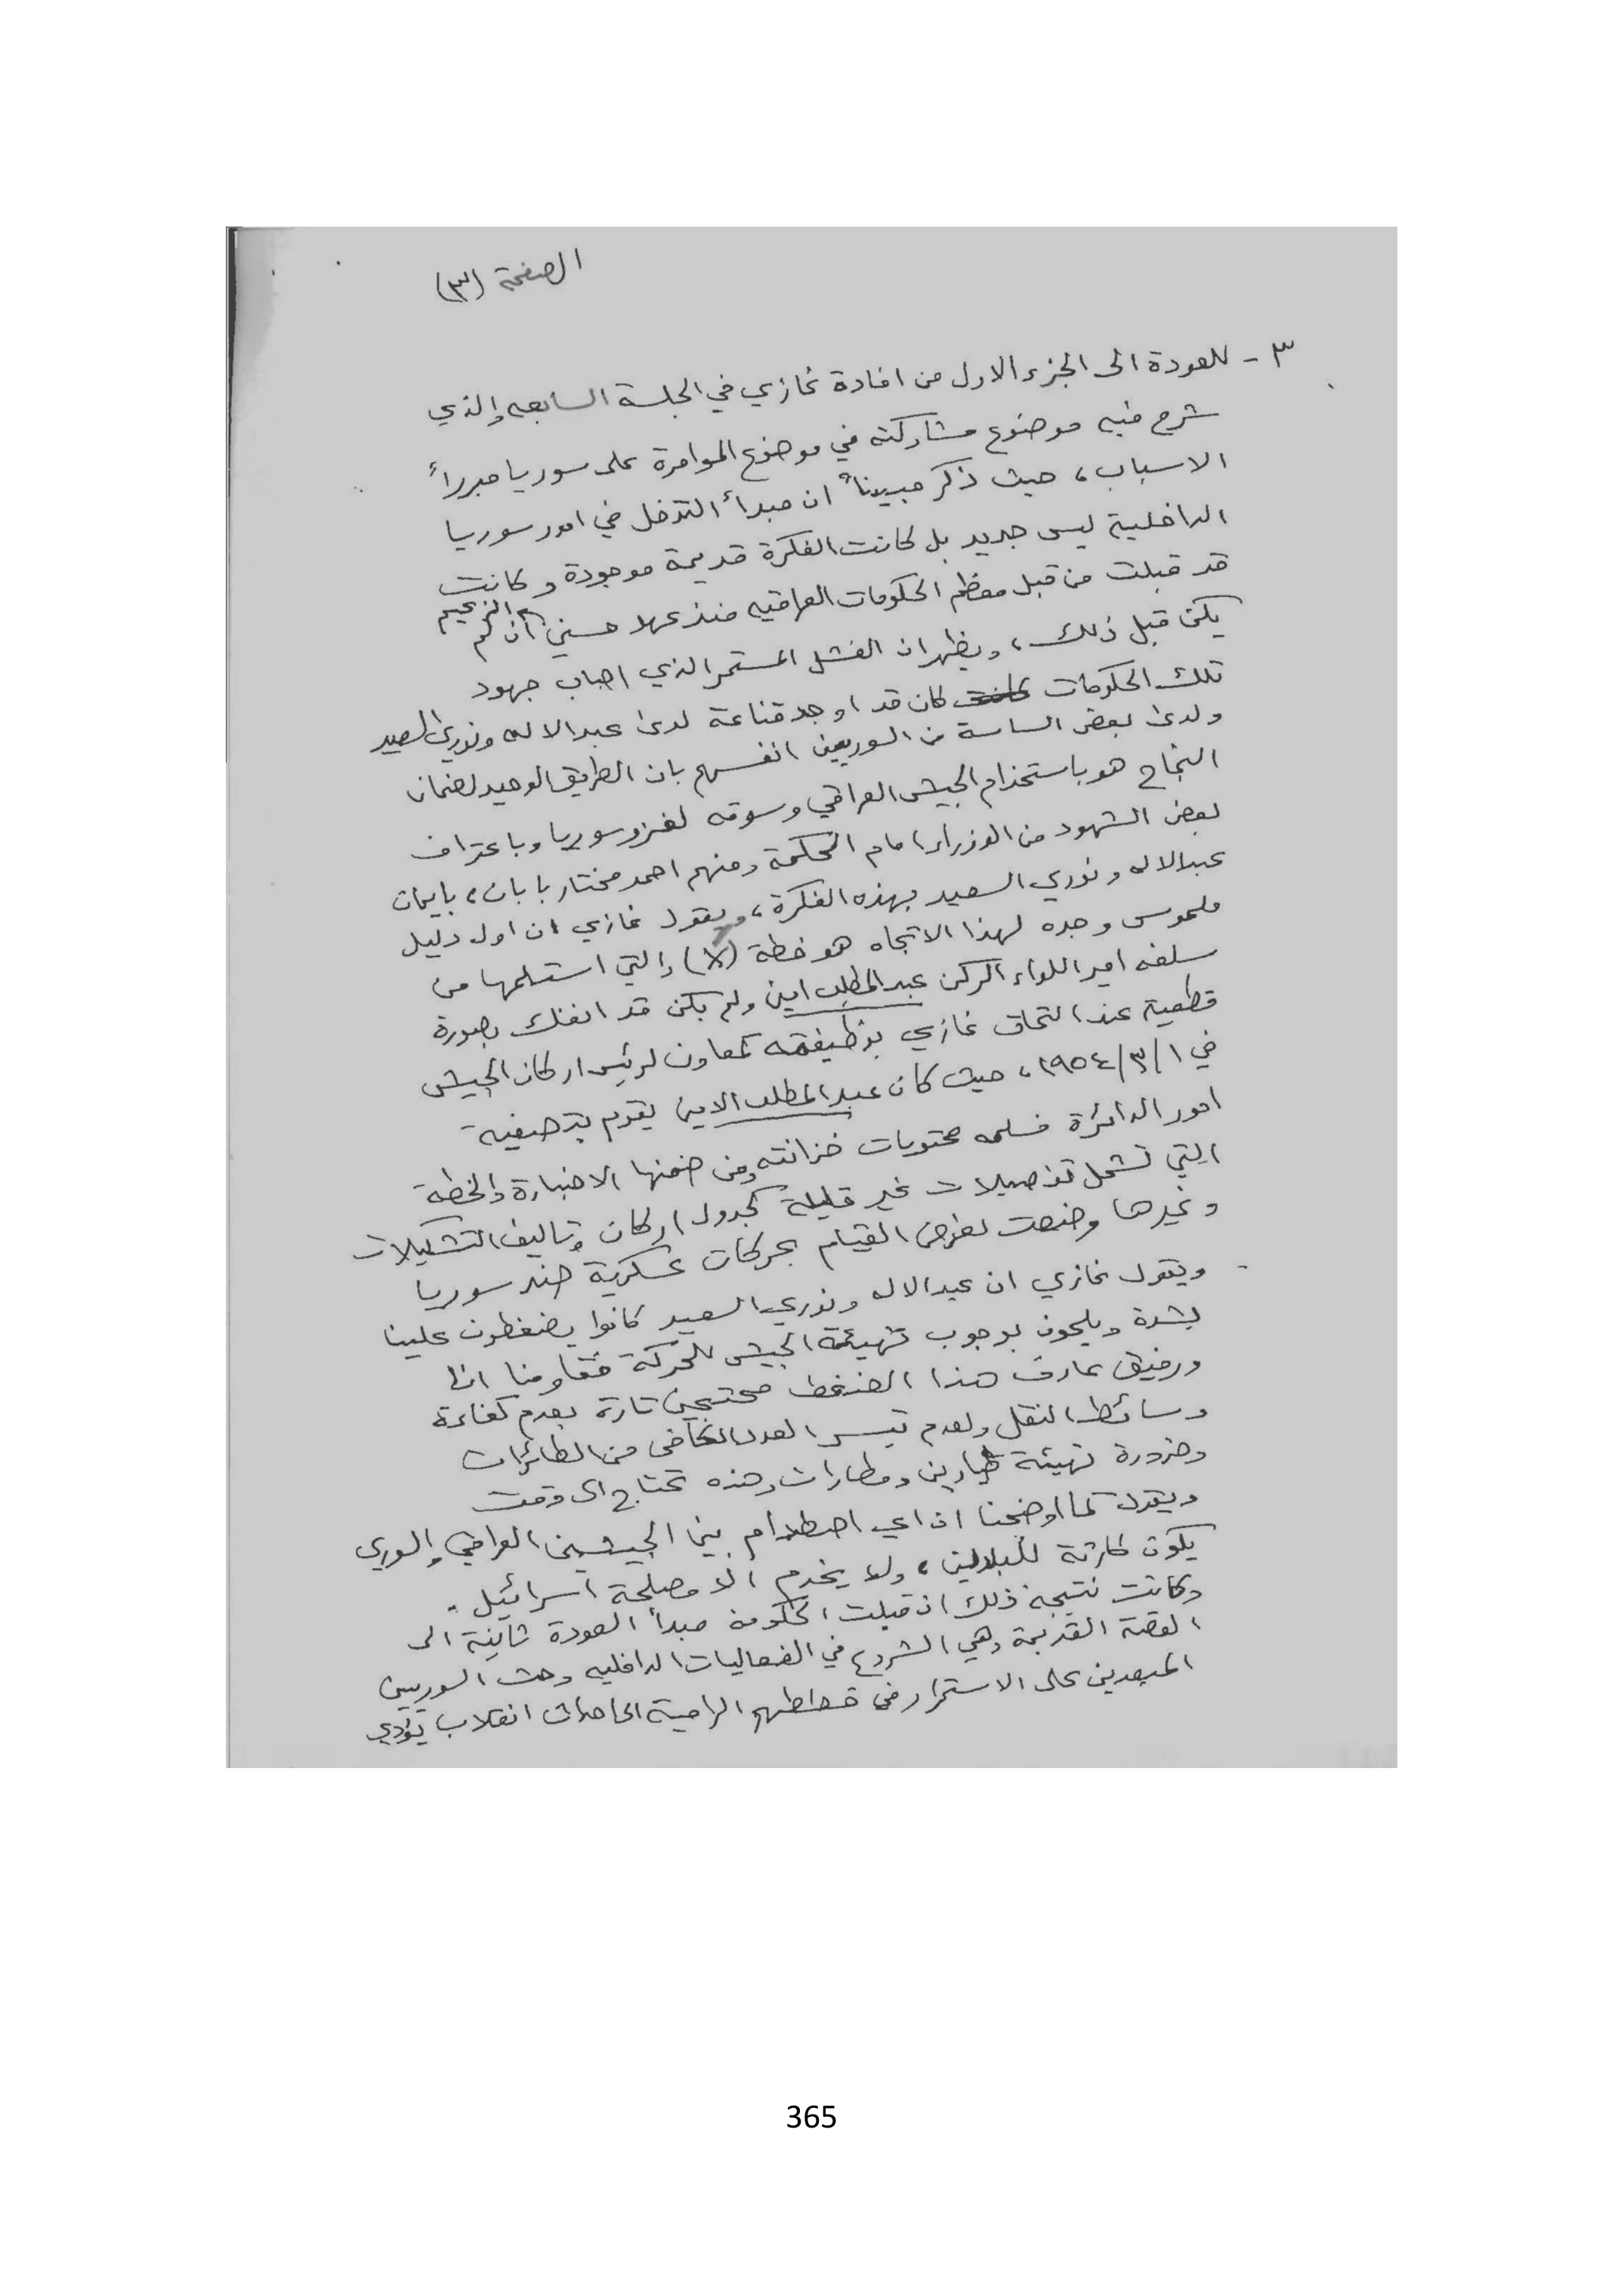 الصفحة (٣)
٣ - للعودة الى الجزء الاول من افادة غازي في الجلسة السابعه والذي
شرح فيه موضوع مشاركته في موضوع الموامرة على سوريا مبرراً
الاسباب، حيث ذكر مبيناً ان مبدأ التدخل في امور سوريا
الداخلية ليس جديد بل كانت الفكرة قديمة موجودة وكانت
قد قبلت من قبل معظم الحكومات العراقيه منذ عهد حسني الزعيم ان لم
يكن قبل ذلك، ويظهر ان الفشل المستمر الذي اصاب جهود
تلك الحكومات كان قد اوجد قناعة لدى عبدالاله ونوري السعيد
ولدى بعض الساسة من السوريين انفسهم بان الطريق الوحيد لضمان
النجاح هو باستخدام الجيش العراقي وسوقه لغزو سوريا وباعتراف
بعض الشهود من الوزراء امام المحكمة ومنهم احمد مختار بابان، بايمان
عبدالاله ونوري السعيد بهذه الفكرة، ويقول غازي ان اول دليل
ملموس وجده لهذا الاتجاه هو خطة (X) والتي استلمها من
سلفه امير اللواء الركن عبدالمطلب امين ولم يكن قد انفك بصورة
قطعية عند التحاق غازي بوظيفته كمعاون لرئيس اركان الجيش
في ١/٣/١٩٥٤، حيث كان عبدالمطلب الامين يقوم بتصفية
امور الدائرة فسلمه محتويات خزانته ومن ضمنها الاضبارة والخطة
التي تشمل تفصيلات غير قليلة كجدول اركان وتاليف التشكيلات
وغيرها وضعت لغرض القيام بحركات عسكرية ضد سوريا
ويقول غازي ان عبدالاله ونوري السعيد كانوا يضغطون علينا
بشدة ويلحون بوجوب تهيئة الجيش للحركة فقاومنا انا
ورفيق عارف هذا الضغط محتجين تارة بعدم كفاءة
وسائط النقل ولعدم تيسر العدد الكافي من الطائرات
وضرورة تهيئة طيارين ومطارات وهذه تحتاج الى وقت
ويقول كما اوضحنا ان اي اصطدام بين الجيشين العراقي والسوري
يكون كارثة للبلدين، ولا يخدم الا مصلحة اسرائيل.
وكانت نتيجة ذلك ان قبلت الحكومة مبدأ العودة ثانية الى
القصة القديمة وهي الشروع في الفعاليات الداخليه وحث السوريين
المبعدين على الاستمرار في خططهم الرامية الى احداث انقلاب يؤدي
365